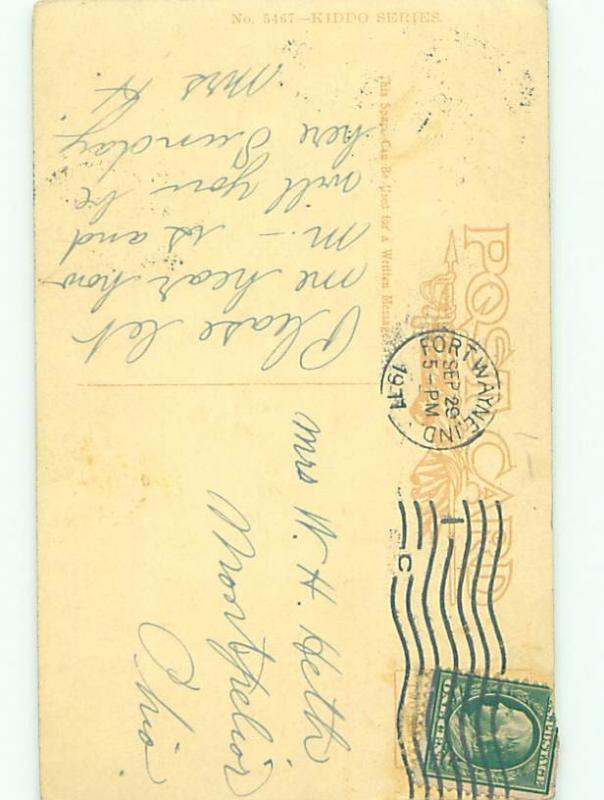 No. 5467—KIDDO SERIES.
POST CARD
This Space Can Be Used for a Written Message
Please let
me hear how
M. — is and
will you be
here Sunday
Mrs H
FORT WAYNE, IND
SEP 29
5-PM
1911
C
U.S. POSTAGE
ONE CENT
Mrs W. H. Heth
Montpelior
Ohio